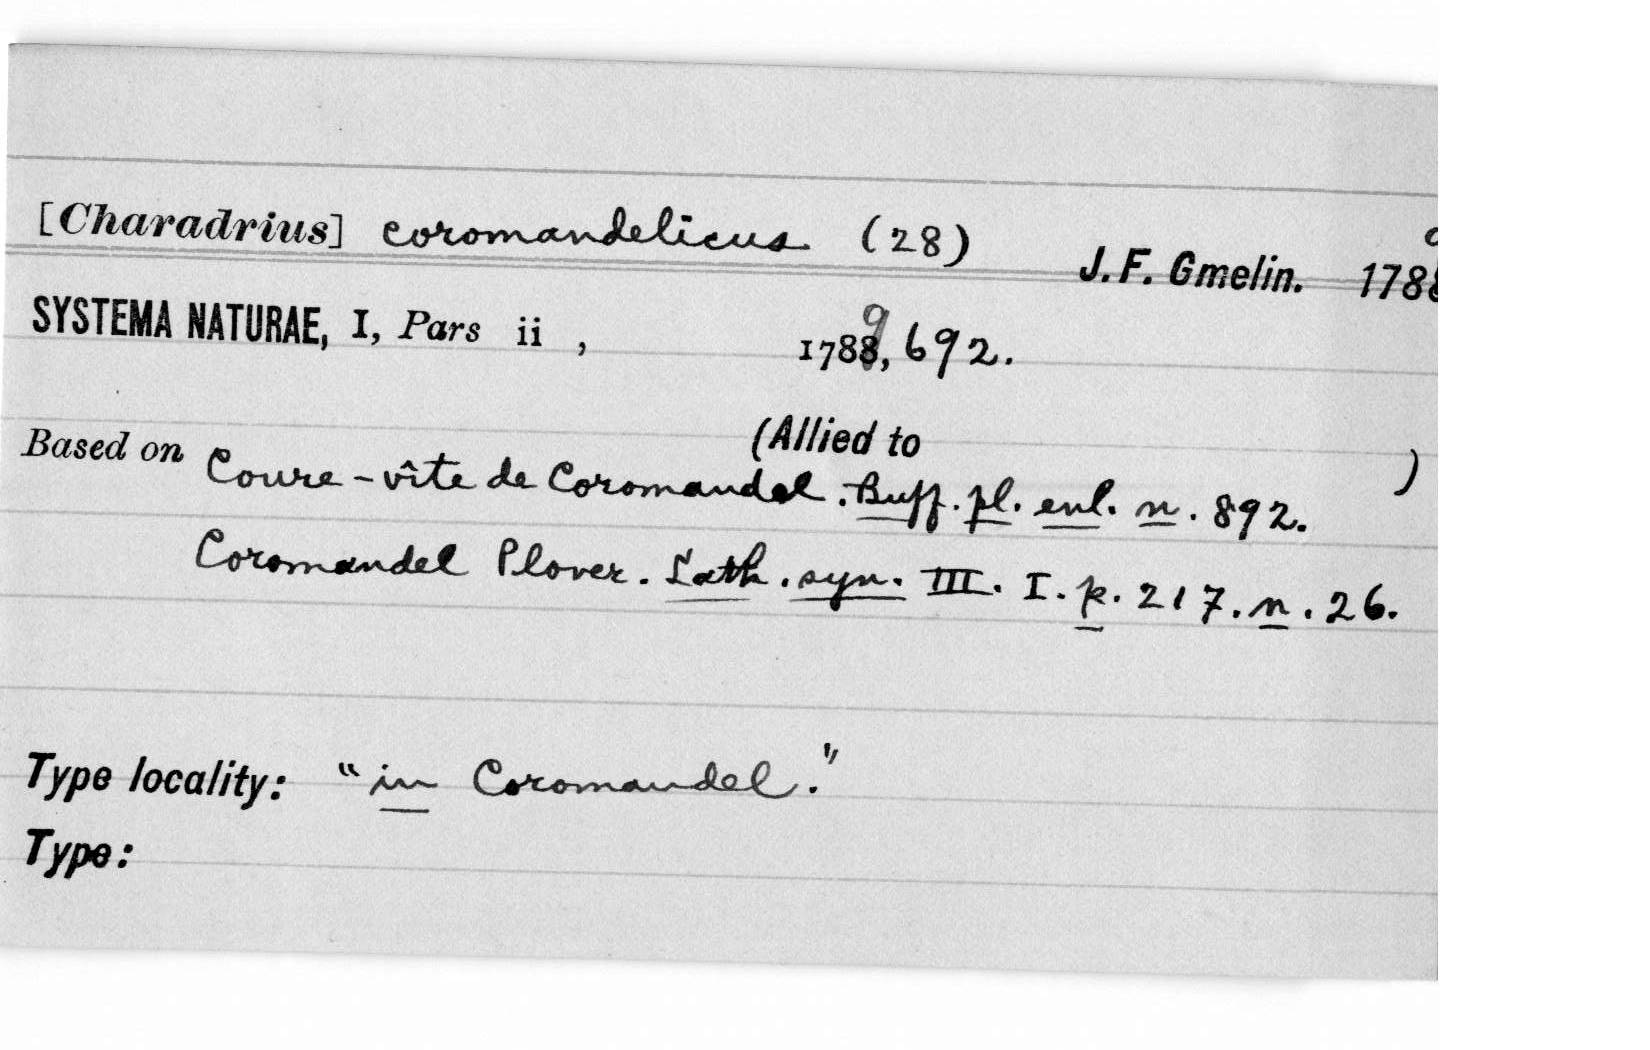 [Charadrius] coromandelicus (28) J. F. Gmelin. 1788
SYSTEMA NATURAE, I, Pars ii , 1789, 692.
(Allied to )
Based on Coure-vîte de Coromandel. Buff. pl. enl. n. 892.
Coromandel Plover. Lath. syn. III. I. p. 217. n. 26.
Type locality: "in Coromandel."
Type: